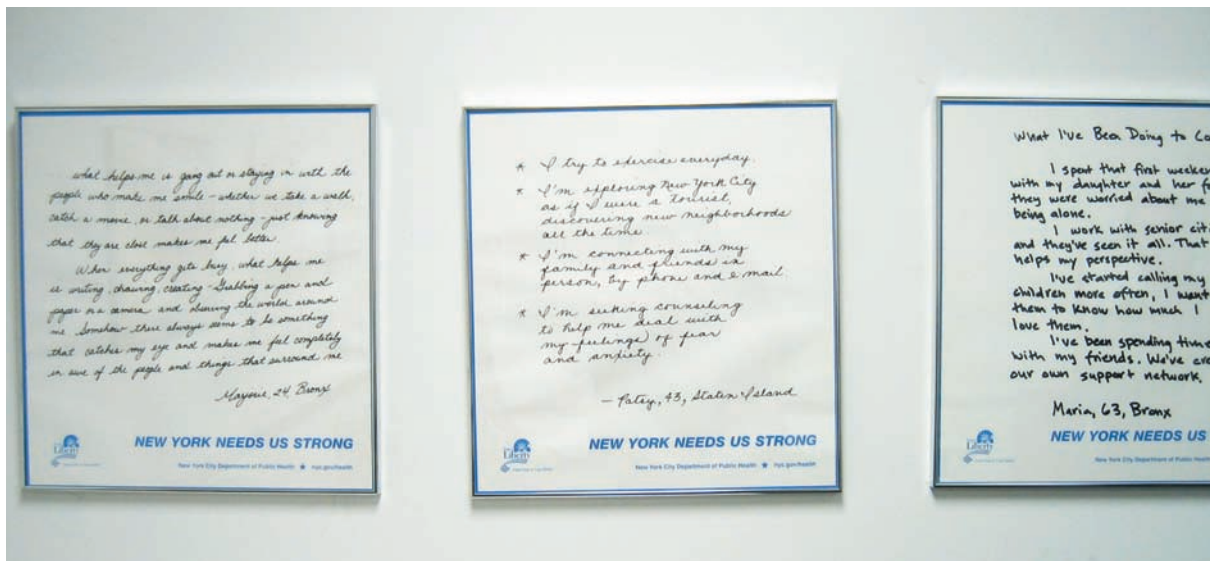 what helps me is going out or staying in with the
people who make me smile - whether we take a walk,
catch a movie, or talk about nothing - just knowing
that they are close makes me feel better.
When everything gets busy, what helps me
is writing, drawing, creating - Grabbing a pen and
paper or a camera and observing the world around
me. Somehow there always seems to be something
that catches my eye and makes me feel completely
in awe of the people and things that surround me
Marjorie, 24, Bronx
Liberty
NEW YORK NEEDS US STRONG
New York City Department of Public Health ★ nyc.gov/health
* I try to exercise everyday.
* I'm exploring New York City
as if I were a tourist,
discovering new neighborhoods
all the time.
* I'm connecting with my
family and friends in
person, by phone and e mail.
* I'm seeking counseling
to help me deal with
my feelings of fear
and anxiety.
- Patsy, 43, Staten Island
Liberty
NEW YORK NEEDS US STRONG
New York City Department of Public Health ★ nyc.gov/health
What I've Been Doing to Co
I spent that first weeken
with my daughter and her f
they were worried about me
being alone.
I work with senior citi
and they've seen it all. That
helps my perspective.
I've started calling my
children more often, I want
them to know how much I
love them.
I've been spending time
with my friends. We've cre
our own support network.
Maria, 63, Bronx
Liberty
NEW YORK NEEDS US
New York City Department of Public Health